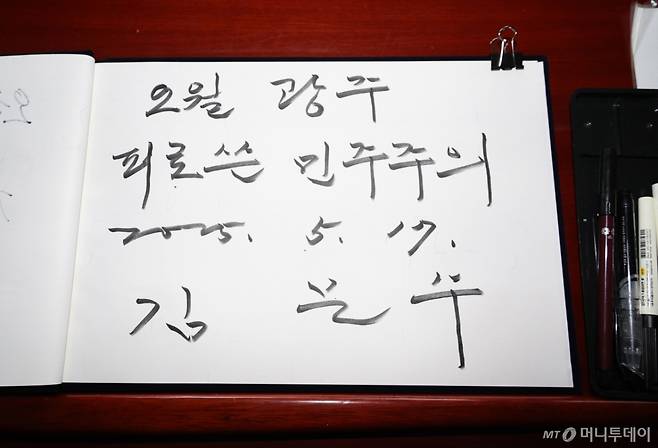 오월 광주
피로쓴 민주주의
2025. 5. 17.
김 문 수
MT 머니투데이